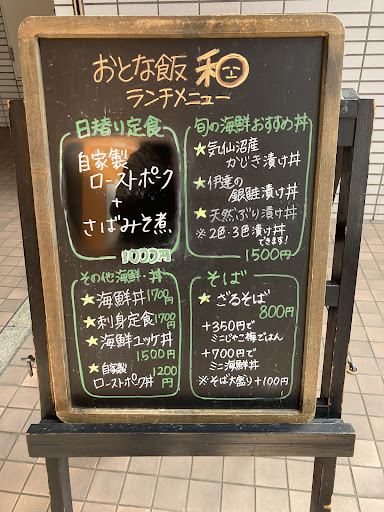 おとな飯 和
ランチメニュー
日替り定食
自家製
ローストポーク
+
さばみそ煮
1000円
旬の海鮮おすすめ丼
★気仙沼産
かじき漬け丼
★伊達の
銀鮭漬け丼
★天然ぶり漬け丼
※2色・3色漬け丼
できます!
1500円
その他海鮮・丼
★海鮮丼 1700円
★刺身定食 1700円
★海鮮ユッケ丼
1500円
★自家製
ローストポーク丼 1200円
そば
★ざるそば
800円
+350円で
ミニじゃこ梅ごはん
+700円で
ミニ海鮮丼
※そば大盛り+100円